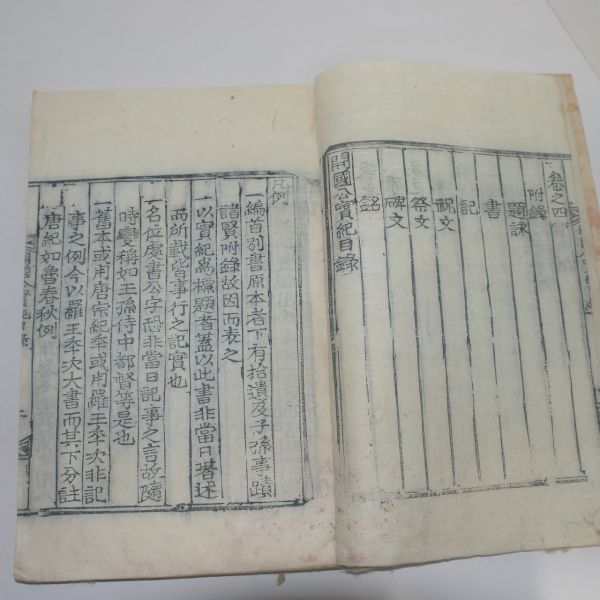 卷之四
附錄
題詠
書
記
祝文
祭文
碑文
銘
開國公實紀目錄
凡例
一編首別書原本者下有拾遺及子孫事蹟
諸賢附錄故因而表之
一以實紀爲標題者蓋以此書非當日撰述
而所載皆事行之記實也
一名位處書公字恐非當日記事之言故隨
時變稱如王孫侍中都督等是也
一舊本或用唐宗紀年或用羅王年次非記
事之例今以羅王年次大書而其下分註
唐紀如魯春秋例